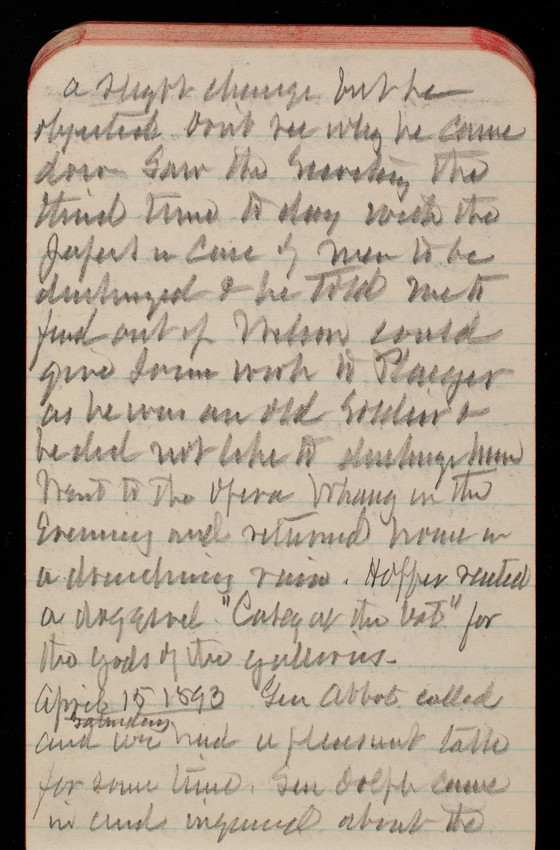 a slight change but he
objected. Dont see why he came
down Saw the Secretary the
third time to day with the
papers in Case of men to be
discharged & he told me to
find out if Wilson could
give some work to
as he was an old Soldier &
he did not like to discharge him
Went to the Opera Whang in the
Evening and returned home in
a drenching rain. Hopper recited
a doggerel "Casey at the bat" for
the gods of the galleries.
April 15 1893 Gen Abbot called
Saturday
and we had a pleasant talk
for some time. Gen Dolph came
in and inquired about the